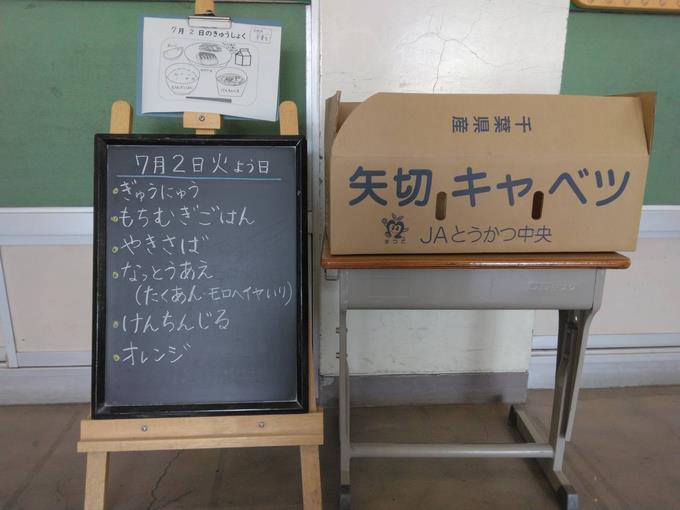 7月2日のきゅうしょく
7月2日火よう日
ぎゅうにゅう
もちむぎごはん
やきさば
なっとうあえ
(たくあん・モロヘイヤいり)
けんちんじる
オレンジ
千葉県産
矢切 キャベツ
まつど
JAとうかつ中央